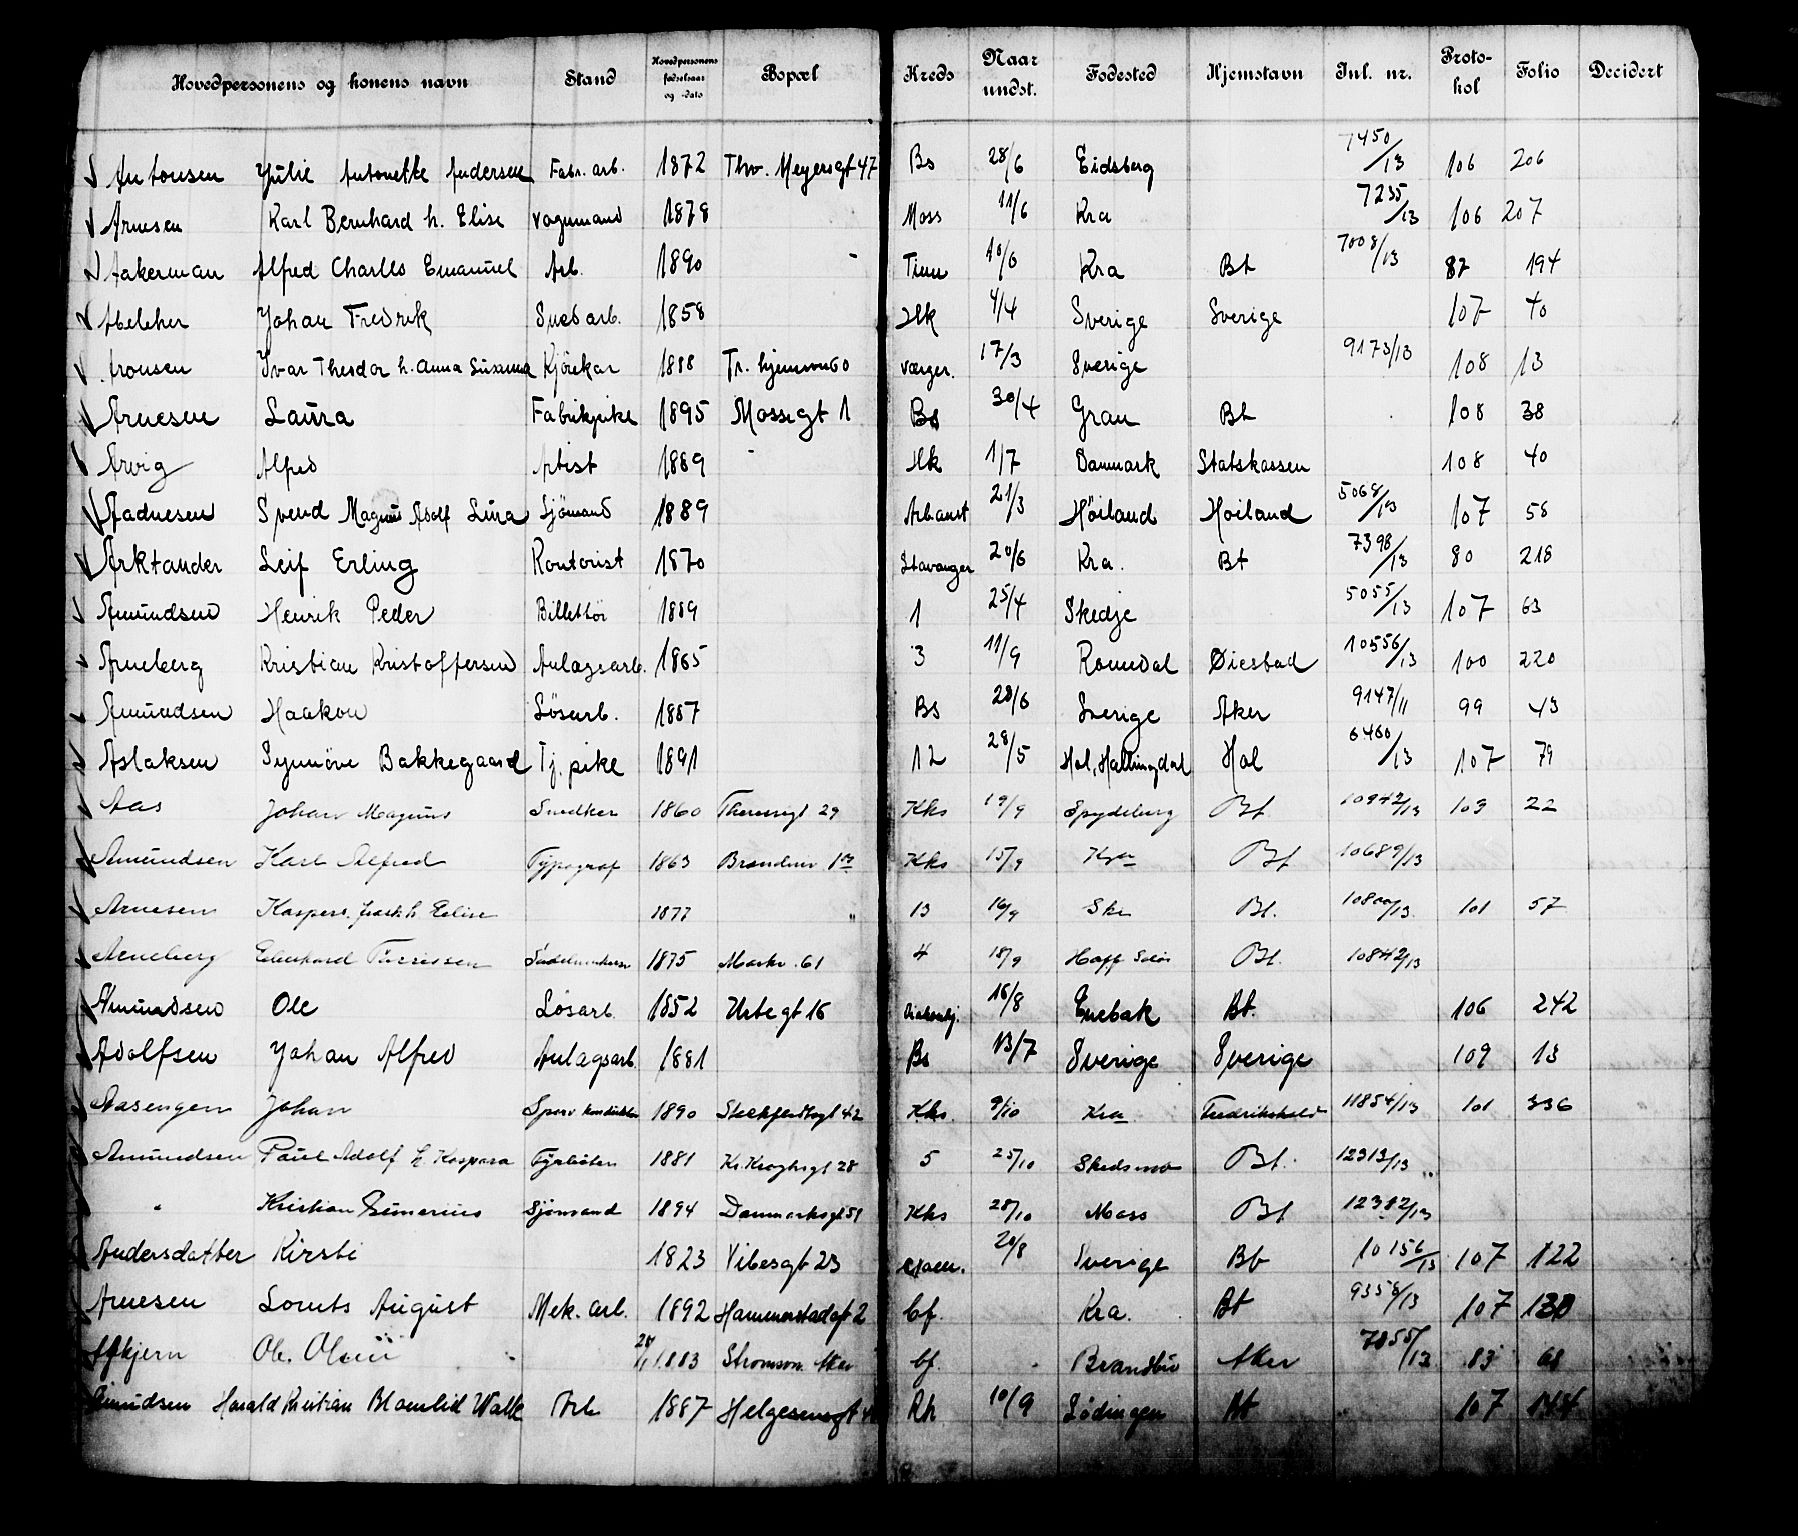 Hovedpersonens og konens navn Stand Hovedpersonens fødselsaar og -dato Bopæl Kreds Naar undst. Fødested Hjemstavn Inl. nr. Protokol Folio Decidert
Antonsen Julie Antonette Andersen Fabr. arb. 1872 Thv. Meyersgt 47 Bs 28/6 Eidsberg 7450/13 106 206
Arnesen Karl Bernhard h. Elise vognmand 1878 Moss 11/6 Kra 7235/13 106 207
Aakerman Alfred Charles Emanuel Arb. 1890 - 10/6 Kra Bt 7008/13 87 194
Johan Fredrik 1858 4/4 Sverige Sverige 107 40
Aronsen Ivar Theodor h. Anna Susanna Kjørekar 1888 Tr. hjemsvn 60 værger. 17/3 Sverige 9173/13 108 13
Arnesen Laura Fabrikpike 1895 Mossegt 1 Bs 30/4 Gran Bt 108 38
Arvig Alfred Artist 1889 - 1/7 Danmark Statskassen 108 40
Aadnesen Svend Magnus Adolf Lura Sjømand 1889 Arbanst 21/3 Høiland Høiland 5068/13 107 58
Arktander Leif Erling Kontorist 1870 Stavanger 20/6 Kra. Bt 7398/13 80 218
Amundsen Henrik Peder Billettør 1889 1 25/4 Skedje 5055/13 107 63
Arneberg Kristian Kristoffersen Anlagsarb. 1865 3 11/9 Romedal Øiestad 10556/13 100 220
Amundsen Haakon Løsarb. 1887 Bs 28/6 Sverige Aker 9147/11 99 43
Aslaksen Synnøve Bakkegaard Tj. pike 1891 12 28/5 Hol, Hallingdal Hol 6460/13 107 79
Aas Johan Magnus Snedker 1860 Theresesgt 29 Kks 19/9 Spydeberg Bt 10942/13 103 22
Amundsen Karl Alfred Typograf 1863 Kks 15/9 Bt 10689/13
Arnesen Kaspera 1877 " 13 16/9 Ski Bt. 10800/13 101 57
Arneberg Torrissen 1875 Markv. 61 4 18/9 Hoff Solør Bt. 10842/13
Amundsen Ole Løsarb. 1852 Urtegt 16 Diakonhj. 16/8 Enebak Bt. 106 242
Adolfsen Johan Alfred Anlagsarb. 1881 Bs 13/7 Sverige Sverige 109 13
Aasengen Johan Sporv konduktør 1890 42 Kks. 9/10 Kra Fredrikshald 11854/13 101 336
Amundsen Paul Adolf h. Kaspara Fyrbøter 1881 Kr. Kroghsgt 28 5 25/10 Skedsmo Bt. 12313/13
" Kristian Sjømand 1894 Danmarksgt 51 Kks 28/10 Moss Bt 12382/13
Andersdatter Kirsti 1823 Vibesgt 23 20/8 Sverige Bt 10156/13 107 122
Arnesen Lorents August Mek. arb. 1892 Hammerstadgt 2 bf. Kra. Bt 9358/13 107 130
Ole Olsen 1883 Aker bf. Brandbu Aker 7855/13 83 68
Amundsen Harald Kristian Arb 1887 Helgesensgt Rh 10/9 Lødingen Bt 107 144